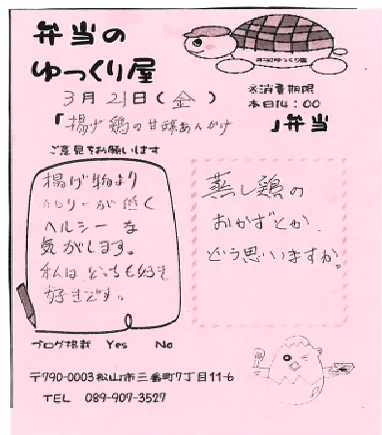 弁当の
ゆっくり屋
3月21日(金)
※消費期限
本日14:00
「揚げ鶏の甘酢あんかけ 」弁当
ご意見をお願いします
揚げ物より
カロリーが低く
ヘルシーな
気がします。
私はどっちも好き
好きです。
蒸し鶏の
おかずとか
どう思いますか。
ブログ掲載 Yes No
〒790-0003松山市三番町7丁目11-6
TEL 089-907-3527